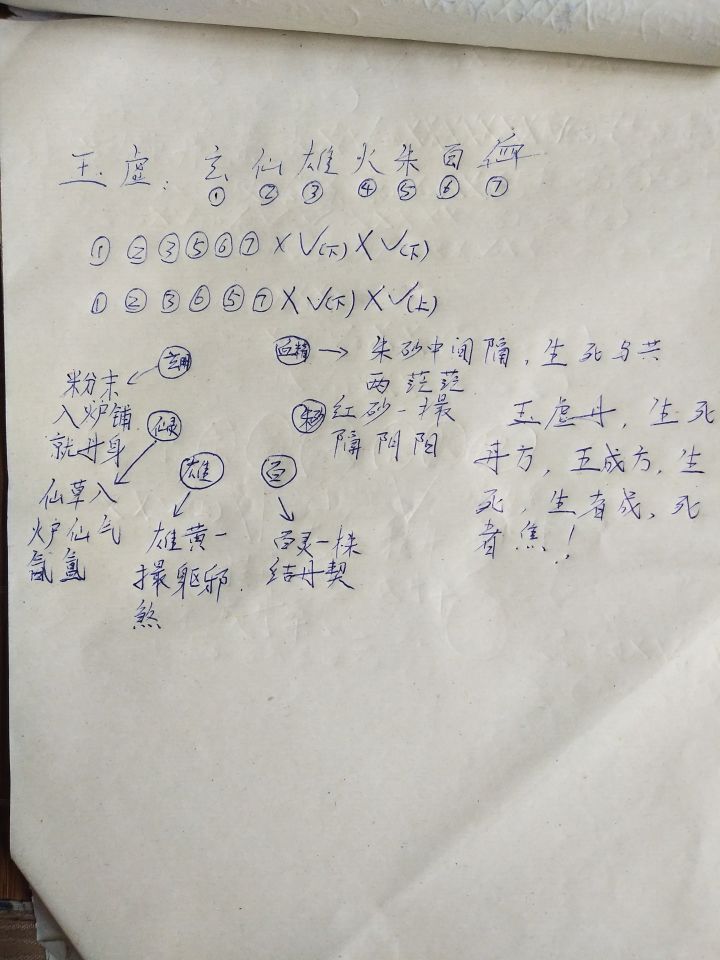 玉虚：玄仙雄火朱百
① ② ③ ④ ⑤ ⑥ ⑦
① ② ③ ⑤ ⑥ ⑦ × √(下) × √(下)
① ② ③ ⑥ ⑤ ⑦ × √(下) × √(上)
粉末
入炉铺
就丹身
仙草入
炉仙气
氤氲
雄
雄黄一
撮躯邪
煞
百
百灵一株
结丹契
→ 朱砂中间隔，生死与共
两茫茫
红砂一撮
隔阴阳
玉虚丹，生死
丹方，五成方，生
死，生者成，死
者焦！